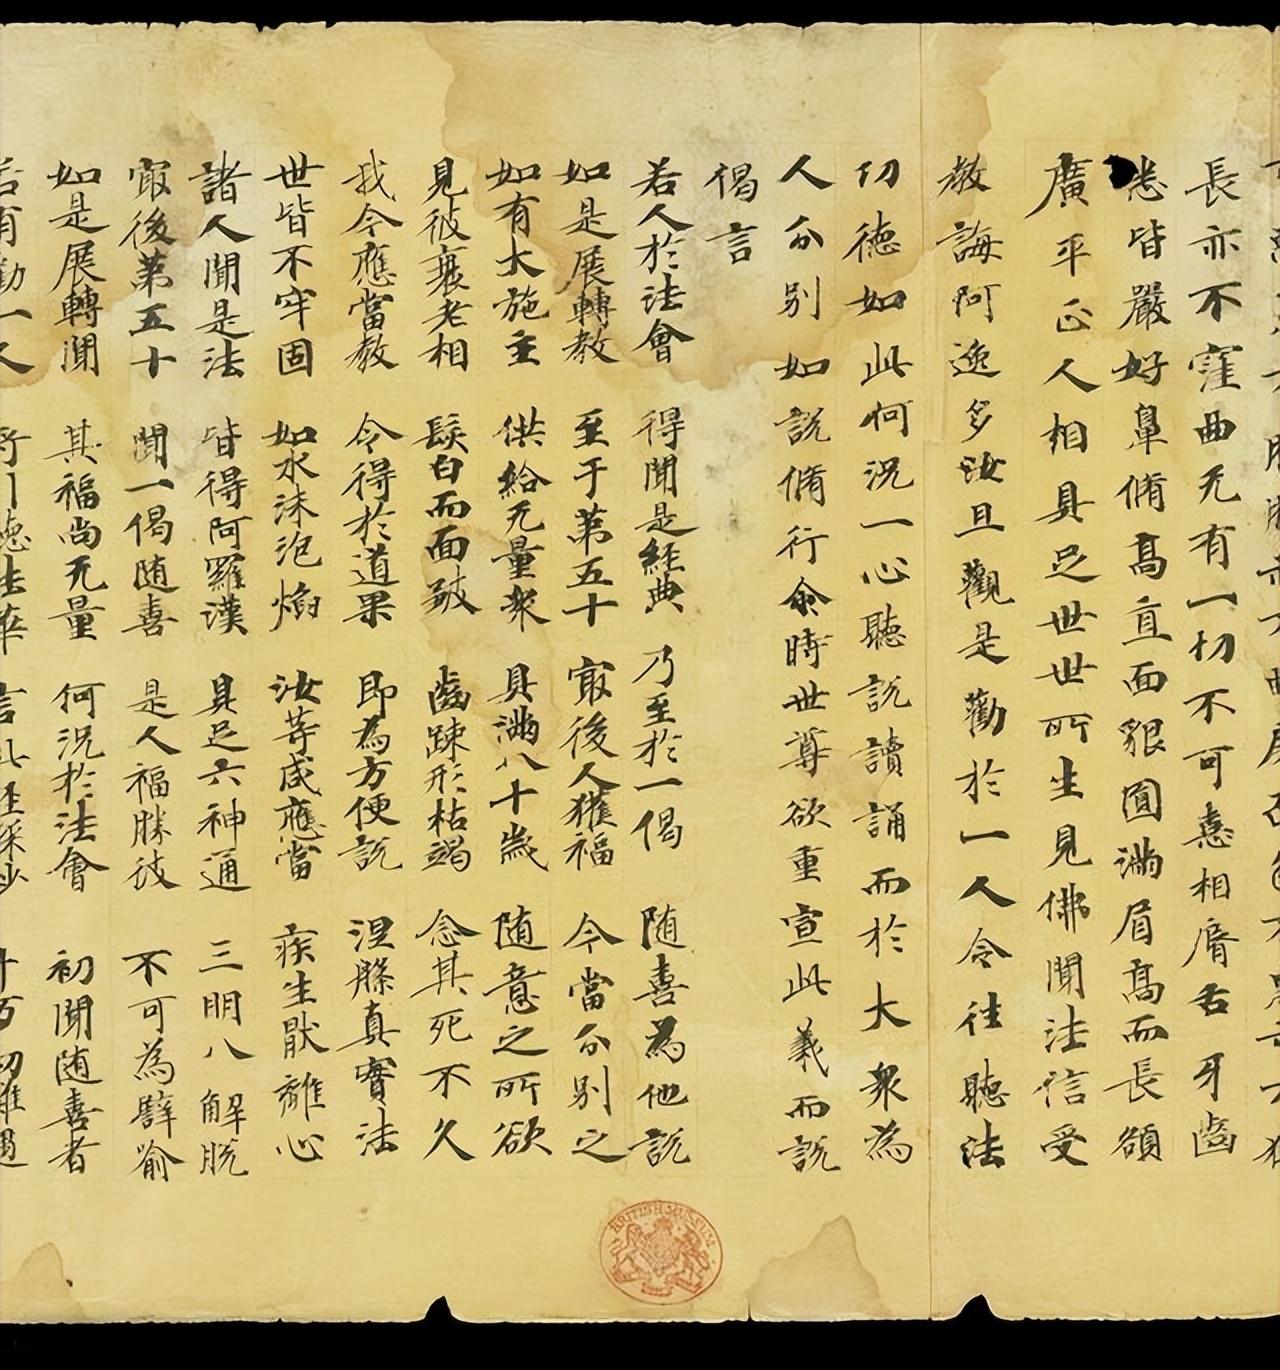 長亦不窪曲无有一切不可憙相脣舌牙齒
悉皆嚴好鼻脩髙直面貇圓滿眉髙而長額
廣平正人相具足世世所生見佛聞法信受
教誨阿逸多汝且觀是勸於一人令往聽法
功德如此何況一心聽說讀誦而於大衆為
人分別如說脩行尒時世尊欲重宣此義而說
偈言
若人於法會 得聞是經典 乃至於一偈 随喜為他說
如是展轉教 至于第五十 冣後人獲福 今當分別之
如有大施主 供給无量衆 具滿八十歲 随意之所欲
見彼衰老相 髮白而面皺 齒踈形枯竭 念其死不久
我今應當教 令得於道果 即為方便說 涅槃真實法
世皆不牢固 如水沫泡焰 汝等咸應當 疾生猒離心
諸人聞是法 皆得阿羅漢 具足六神通 三明八解脫
冣後第五十 聞一偈随喜 是人福勝彼 不可為譬喻
如是展轉聞 其福尚无量 何況於法會 初聞随喜者
BRITISH MUSEUM